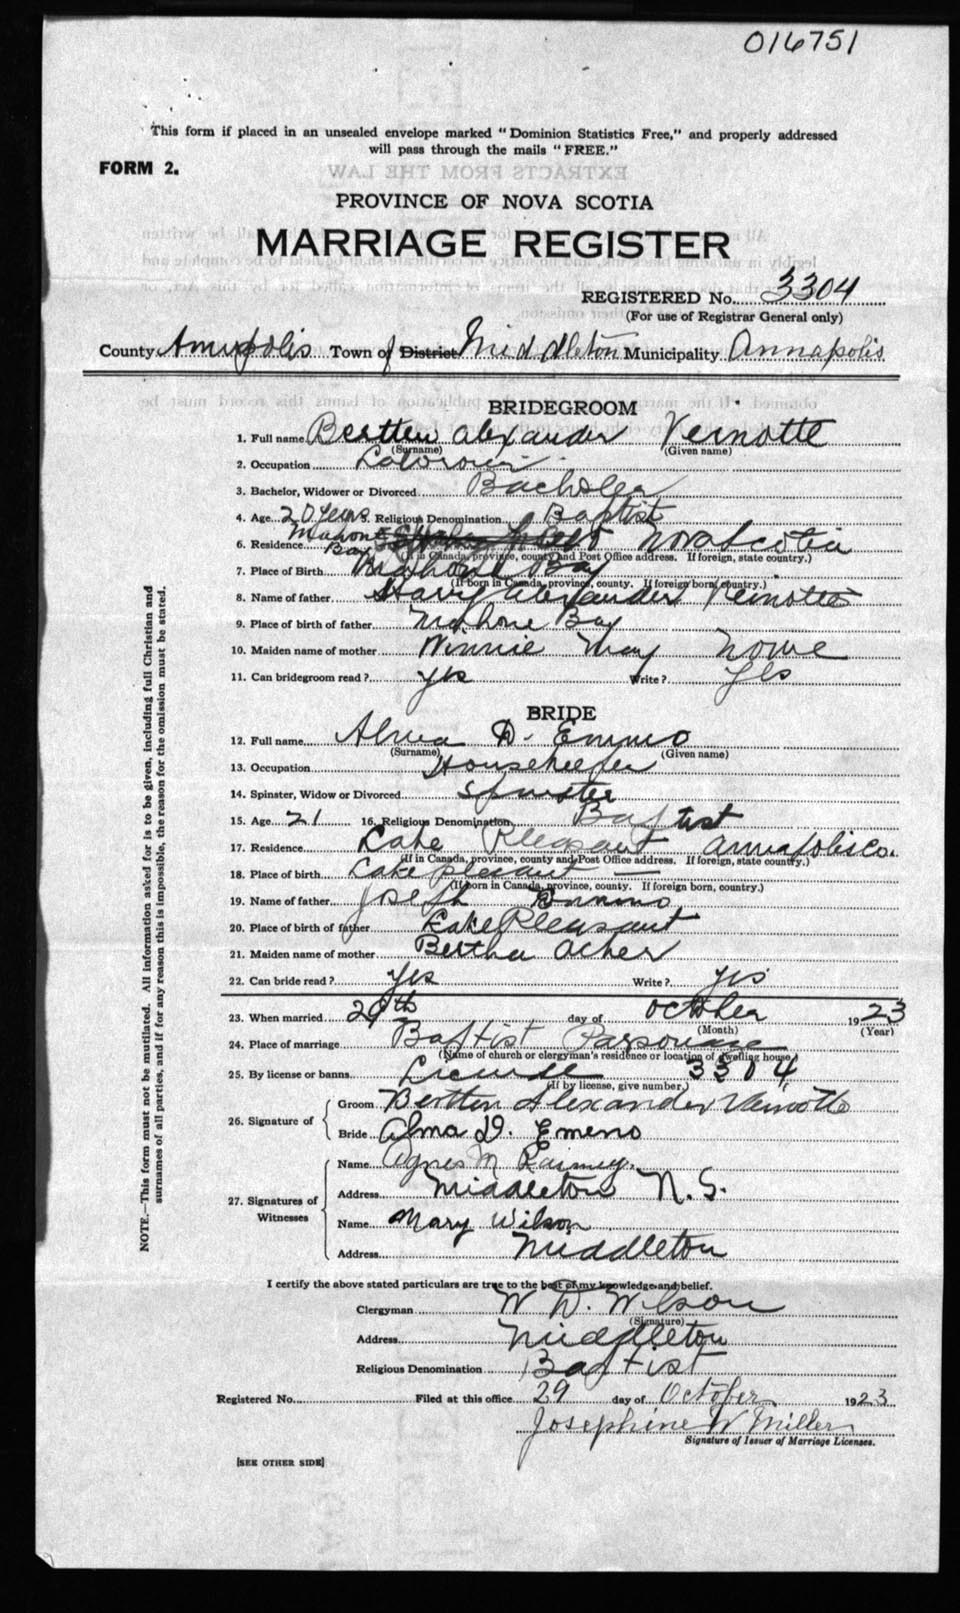 016751
This form if placed in an unsealed envelope marked "Dominion Statistics Free," and properly addressed
will pass through the mails "FREE."
FORM 2.
EXTRACTS FROM THE LAW
PROVINCE OF NOVA SCOTIA
MARRIAGE REGISTER
REGISTERED No. 3304
(For use of Registrar General only)
County Annapolis Town of District Middleton Municipality Annapolis
BRIDEGROOM
1. Full name Bertten Alexander Veinotte
(Surname) (Given name)
2. Occupation
3. Bachelor, Widower or Divorced Bachelor
4. Age 20 years 5. Religious Denomination Baptist
6. Residence Mahone Bay Nova Scotia
(If in Canada, province, county and Post Office address. If foreign, state country.)
7. Place of Birth Mahone Bay
(If born in Canada, province, county. If foreign born, country.)
8. Name of father Alexander Veinotte
9. Place of birth of father Mahone Bay
10. Maiden name of mother Winnie May
11. Can bridegroom read? yes Write? yes
BRIDE
12. Full name Alma D. Emino
(Surname) (Given name)
13. Occupation Housekeeper
14. Spinster, Widow or Divorced Spinster
15. Age 21 16. Religious Denomination Baptist
17. Residence Lake Pleasant Annapolis Co.
(If in Canada, province, county and Post Office address. If foreign, state country.)
18. Place of birth Lake pleasant —
(If born in Canada, province, county. If foreign born, country.)
19. Name of father Joseph Emino
20. Place of birth of father Lake Pleasant
21. Maiden name of mother Bertha Acker
22. Can bride read? yes Write? yes
23. When married 29th day of October 1923
(Month) (Year)
24. Place of marriage Baptist Parsonage
(Name of church or clergyman's residence or location of dwelling house)
25. By license or banns License 3304
(If by license, give number.)
26. Signature of Groom Bertten Alexander Veinotte
Bride Alma D. Emeno
27. Signatures of Witnesses Name Agnes M
Address Middleton N.S.
Name Mary Wilson
Address Middleton
I certify the above stated particulars are true to the best of my knowledge and belief.
Clergyman W D. Wilson
(Signature)
Address Middleton
Religious Denomination Baptist
Registered No. Filed at this office 29 day of October 1923
Josephine W Miller
Signature of Issuer of Marriage Licenses.
[SEE OTHER SIDE]
NOTE.—This form must not be mutilated. All information asked for is to be given, including full Christian and
surnames of all parties, and if for any reason this is impossible, the reason for the omission must be stated.